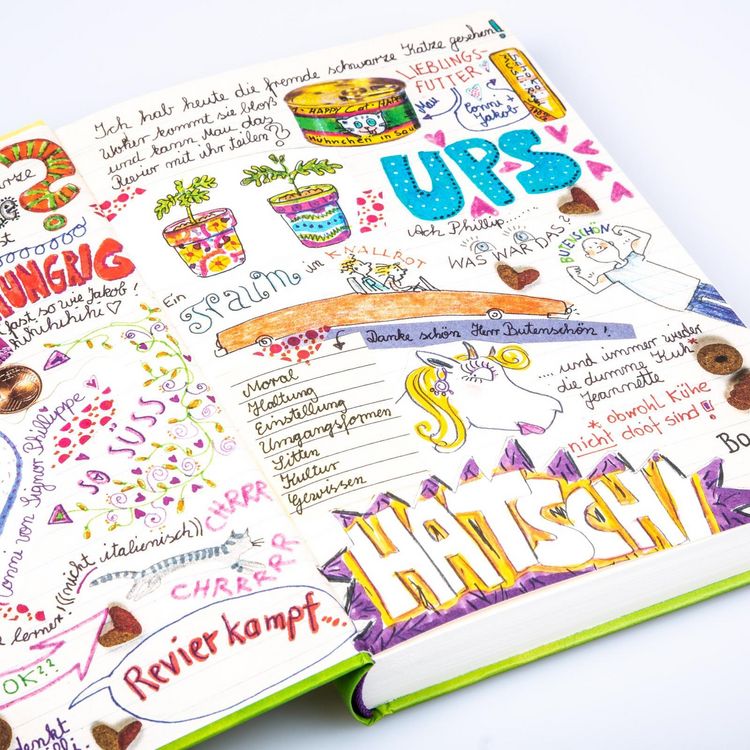 arze
?
st
HUNGRIG
fast so wie Jakob!
Hihihihihi ♡
SO SÜSS
Conni von Signor Phillippe
((nicht italienisch))
lernen!
CHRRR
CHRRRR
CHRRRRR
Revierkampf...
OK??
denkt
Ich hab heute die fremde schwarze Katze gesehen!
Woher kommt sie bloß
und kann Mau das
Revier mit ihr teilen?
LIEBLINGS-
FUTTER
HAPPY Cat
Hühnchen in
Mau
Conni +
Jakob
UPS
Ach Phillip......
WAS WAR DAS?
BUTENSCHÖN
Ein
Traum in
KNALLROT
Danke schön Herr Butenschön!
Moral
Haltung
Einstellung
Umgangsformen
Sitten
Kultur
Gewissen
... und immer wieder
die dumme Kuh*
Jeannette
* obwohl Kühe
nicht doof sind!
Bo
HATSCHI